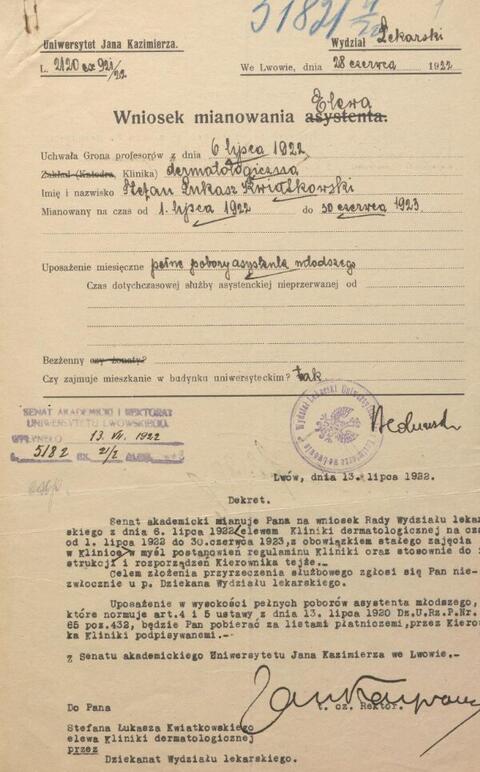 5182/21/22
Uniwersytet Jana Kazimierza.
Wydział Lekarski
L. 2120 ex 921/22
We Lwowie, dnia 28 czerwca 1922
Elewa
Wniosek mianowania asystenta.
Uchwała Grona profesorów z dnia 6 lipca 1922
Zakład (Katedra, Klinika) dermatologiczna
Imię i nazwisko Stefan Łukasz Kwiatkowski
Mianowany na czas od 1. lipca 1922 do 30 czerwca 1923
Uposażenie miesięczne pełne pobory asystenta młodszego
Czas dotychczasowej służby asystenckiej nieprzerwanej od
Bezżenny czy żonaty?
Czy zajmuje mieszkanie w budynku uniwersyteckim? tak
SENAT AKADEMICKI I REKTORAT
UNIWERSYTETU LWOWSKIEGO.
WPŁYNĘŁO 13. VII. 1922
L. 5182 ex 21/2
Wydział Lekarski Uniwersytetu Jana Kazimierza we Lwowie
Lwów, dnia 13. lipca 1922.
Dekret.
Senat akademicki mianuje Pana na wniosek Rady Wydziału lekar
skiego z dnia 6. lipca 1922 elewem Kliniki dermatologicznej na cza
od 1. lipca 1922 do 30.czerwca 1923,z obowiązkiem stałego zajęcia
w Klinice w myśl postanowień regulaminu Kliniki oraz stosownie do i
strukcji i rozporządzeń Kierownika tejże.-
Celem złożenia przyrzeczenia służbowego zgłosi się Pan nie-
zwłocznie u p. Dziekana Wydziału lekarskiego.
Uposażenie w wysokości pełnych poborów asystenta młodszego,
które normuje art.4 i 5 ustawy z dnia 13. lipca 1920 Dz.U.Rz.P.Nr.
65 poz.432, będzie Pan pobierać za listami płatniczemi,przez Kiero
ka Kliniki podpisywanemi.-
Z Senatu akademickiego Uniwersytetu Jana Kazimierza we Lwowie.-
t. cz. Rektor.
Do Pana
Stefana Łukasza Kwiatkowskiego
elewa Kliniki dermatologicznej
przez
Dziekanat Wydziału lekarskiego.